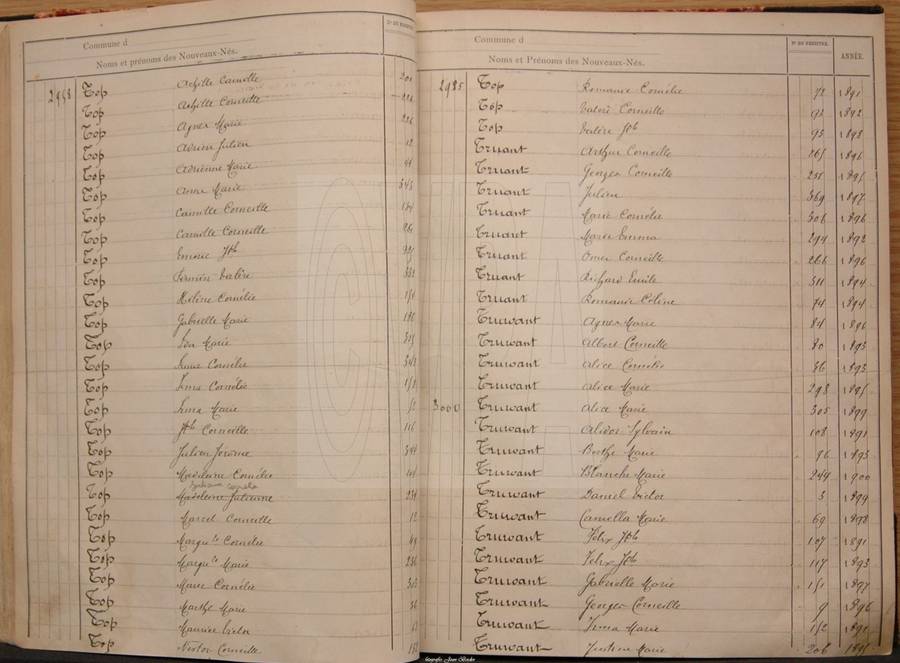 Commune d
Noms et prénoms des Nouveaux-Nés.
N° DU REGISTRE
2958 Top Achille Camille 201
Top Achille Corneille
Top Agnes Marie 226
Top Adrien Julien 12
Top Adrienne Marie
Top Anna Marie 343
Top Camille Corneille 184
Top Camille Corneille
Top Emeric Jph
Top Firmin Valère 332
Top Hélène Cornélie 151
Top Gabrielle Marie 190
Top Ida Marie 315
Top Irma Cornélie 343
Top Irma Cornélie 151
Top Irma Marie
Top Jph Corneille 116
Top Julien Jérome 344
Top Madeleine Cornélie
Top Madeleine Julienne 231
Top Marcel Corneille 12
Top Margte Cornélie 49
Top Margte Marie 236
Top Marie Cornélie 303
Top Marthe Marie 36
Top Maurice Victor
Top Nestor Corneille 152
Commune d
Noms et Prénoms des Nouveaux-Nés.
N° DU REGISTRE.
ANNÉE.
2985 Top Romanie Cornélie 72 1891
Top Valère Corneille 92 1892
Top Valère Jph 95 1898
Truant Arthur Corneille 265 1896
Truant Georges Corneille 251 1895
Truant Julien 369 1897
Truant Marie Cornélie 306 1896
Truant Marie Emma 294 1892
Truant Omer Corneille 266 1896
Truant Richard Emile 311 1894
Truant Romanie Céline 74 1894
Truwant Agnes Marie 84 1896
Truwant Albert Corneille 80 1893
Truwant Alice Cornélie 36 1893
Truwant Alice Marie 298 1895
3000 Truwant Alice Marie 305 1899
Truwant Alidor Sylvain 108 1891
Truwant Berthe Marie 96 1893
Truwant Blanche Marie 249 1900
Truwant Daniel Victor 3 1899
Truwant Camella Marie 69 1898
Truwant Félix Jph 107 1891
Truwant Félix Jph 117 1893
Truwant Gabrielle Marie 151 1897
Truwant Georges Corneille 9 1896
Truwant Irma Marie 152
Truwant Justine Marie 206